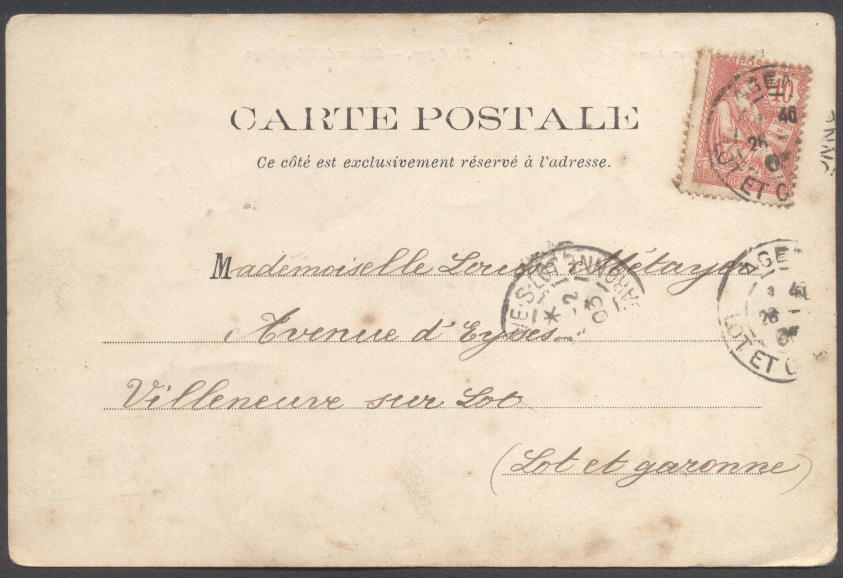 CARTE POSTALE
Ce côté est exclusivement réservé à l'adresse.
Mademoiselle Louise Métayer
Avenue d'Eysses
Villeneuve sur Lot
(Lot et garonne)
10
AGE
LOT ET G
AGE
LOT ET G